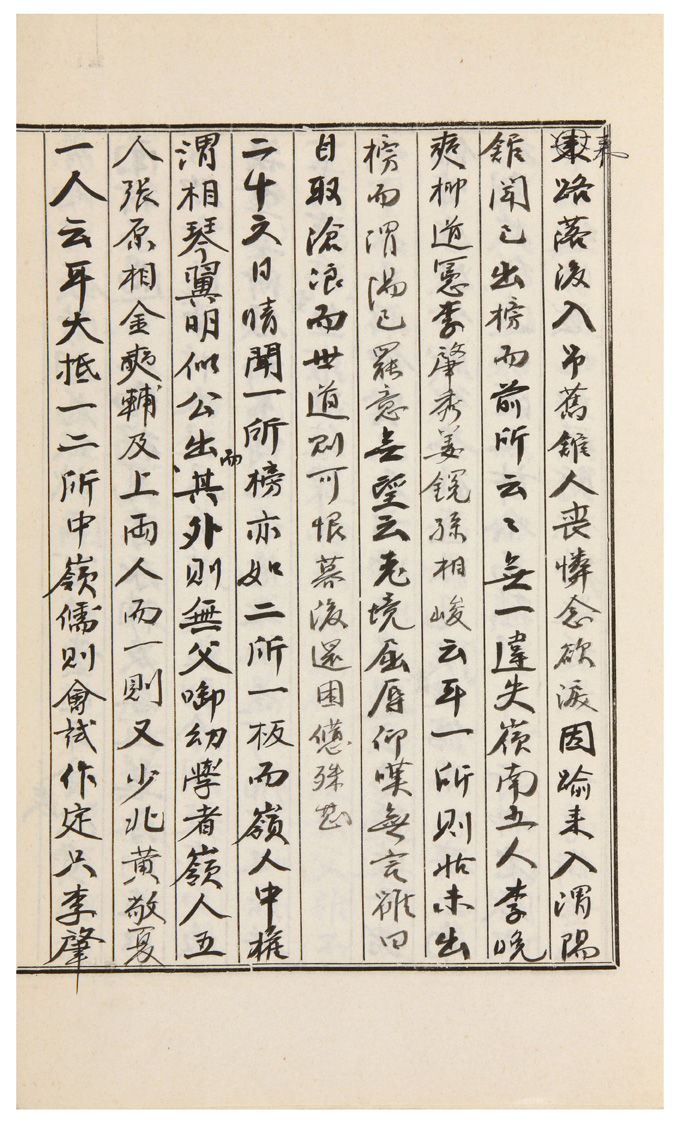 來路落後入吊舊館人喪憐念欲淚因踰来入渭陽
館聞已出榜而前所云〻無一違失嶺南五人李晩
奭柳道憲李肇秀姜銳孫相峻云耳一所則姑未出
榜而渭陽已罷意無望云老境屈辱仰嘆無言雖曰
自取滄浪而世道則可恨暮後還困憊殊甚
二十六日晴聞一所榜亦如二所一板而嶺人中權
渭相琴翼明似公出而其外則無父啣幼學者嶺人五
人張原相金奭輔及上兩人而一則又少北黄敬夏
一人云耳大抵一二所中嶺儒則會試作定只李肇